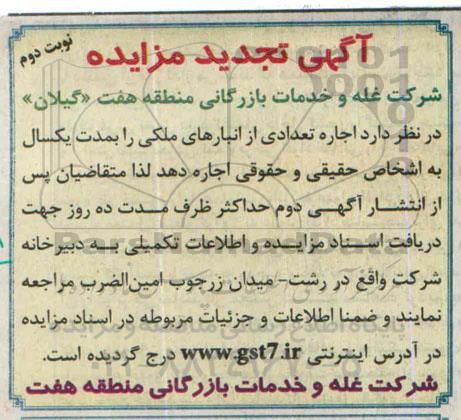 نوبت دوم
آگهی تجدید مزایده
شرکت غله و خدمات بازرگانی منطقه هفت «گیلان»
در نظر دارد اجاره تعدادی از انبارهای ملکی را بمدت یکسال
به اشخاص حقیقی و حقوقی اجاره دهد لذا متقاضیان پس
از انتشار آگهی دوم حداکثر ظرف مدت ده روز جهت
دریافت اسناد مزایده و اطلاعات تکمیلی به دبیرخانه
شرکت واقع در رشت- میدان زرجوب امین‌الضرب مراجعه
نمایند و ضمنا اطلاعات و جزئیات مربوطه در اسناد مزایده
در آدرس اینترنتی www.gst7.ir درج گردیده است.
شرکت غله و خدمات بازرگانی منطقه هفت
ParsNamadData